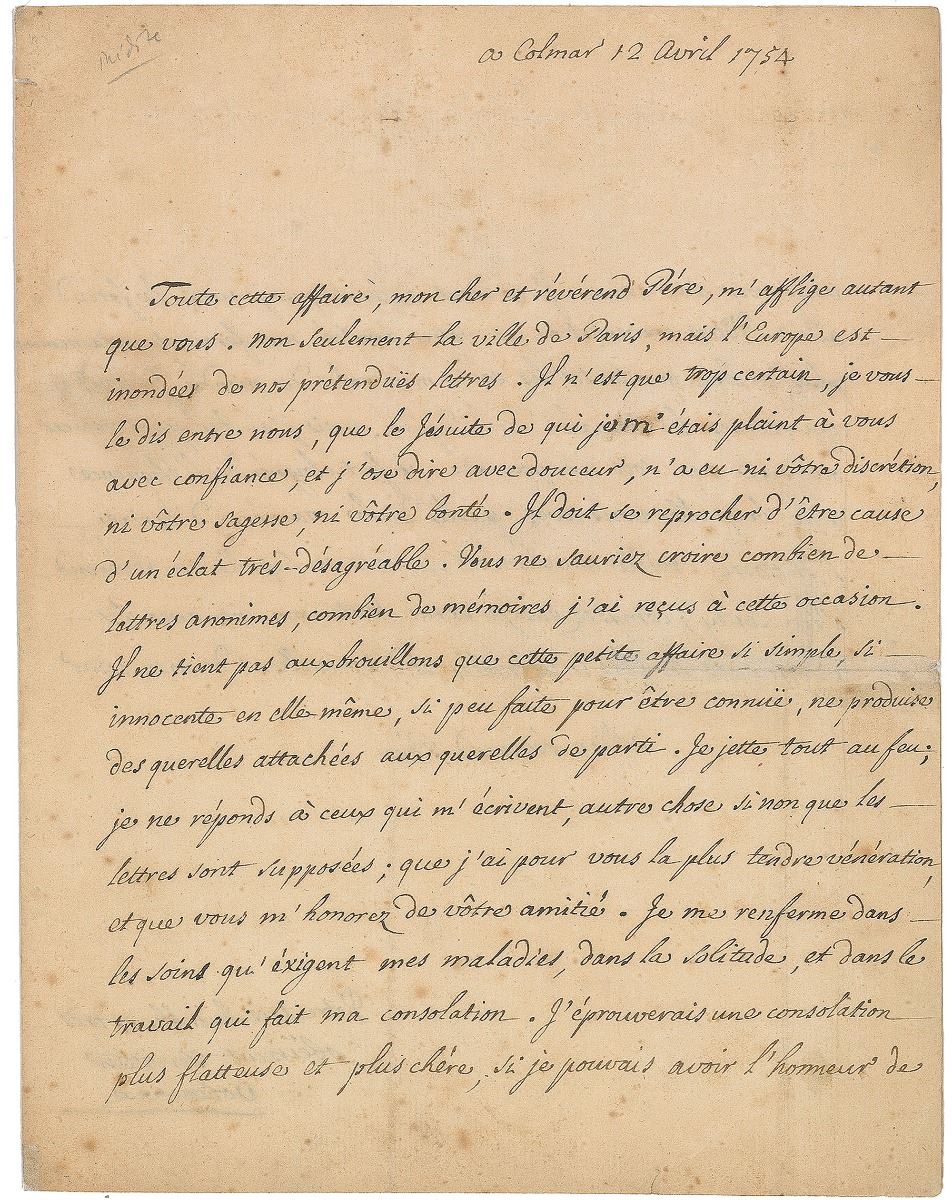 inédite
a Colmar 12 Avril 1754
Toute cette affaire, mon cher et révérend Pére, m'afflige autant
que vous. non seulement la ville de Paris, mais l'Europe est
inondée de nos prétenduës lettres. Il n'est que trop certain, je vous
le dis entre nous, que le Jésuite de qui je m'étais plaint à vous
avec confiance, et j'ose dire avec douceur, n'a eu ni vôtre discrétion,
ni vôtre sagesse, ni vôtre bonté. Il doit se reprocher d'être cause
d'un éclat trés-désagréable. Vous ne sauriez croire combien de
lettres anonimes, combien de mémoires j'ai reçus à cette occasion.
Il ne tient pas aux brouillons que cette petite affaire si simple, si
innocente en elle même, si peu faite pour être connuë, ne produise
des querelles attachées aux querelles de parti. Je jette tout au feu;
je ne réponds à ceux qui m'écrivent, autre chose si non que les
lettres sont supposées; que j'ai pour vous la plus tendre vénération,
et que vous m'honorez de vôtre amitié. Je me renferme dans
les soins qu'éxigent mes maladies, dans la solitude, et dans le
travail qui fait ma consolation. J'éprouverais une consolation
plus flatteuse et plus chére, si je pouvais avoir l'honneur de